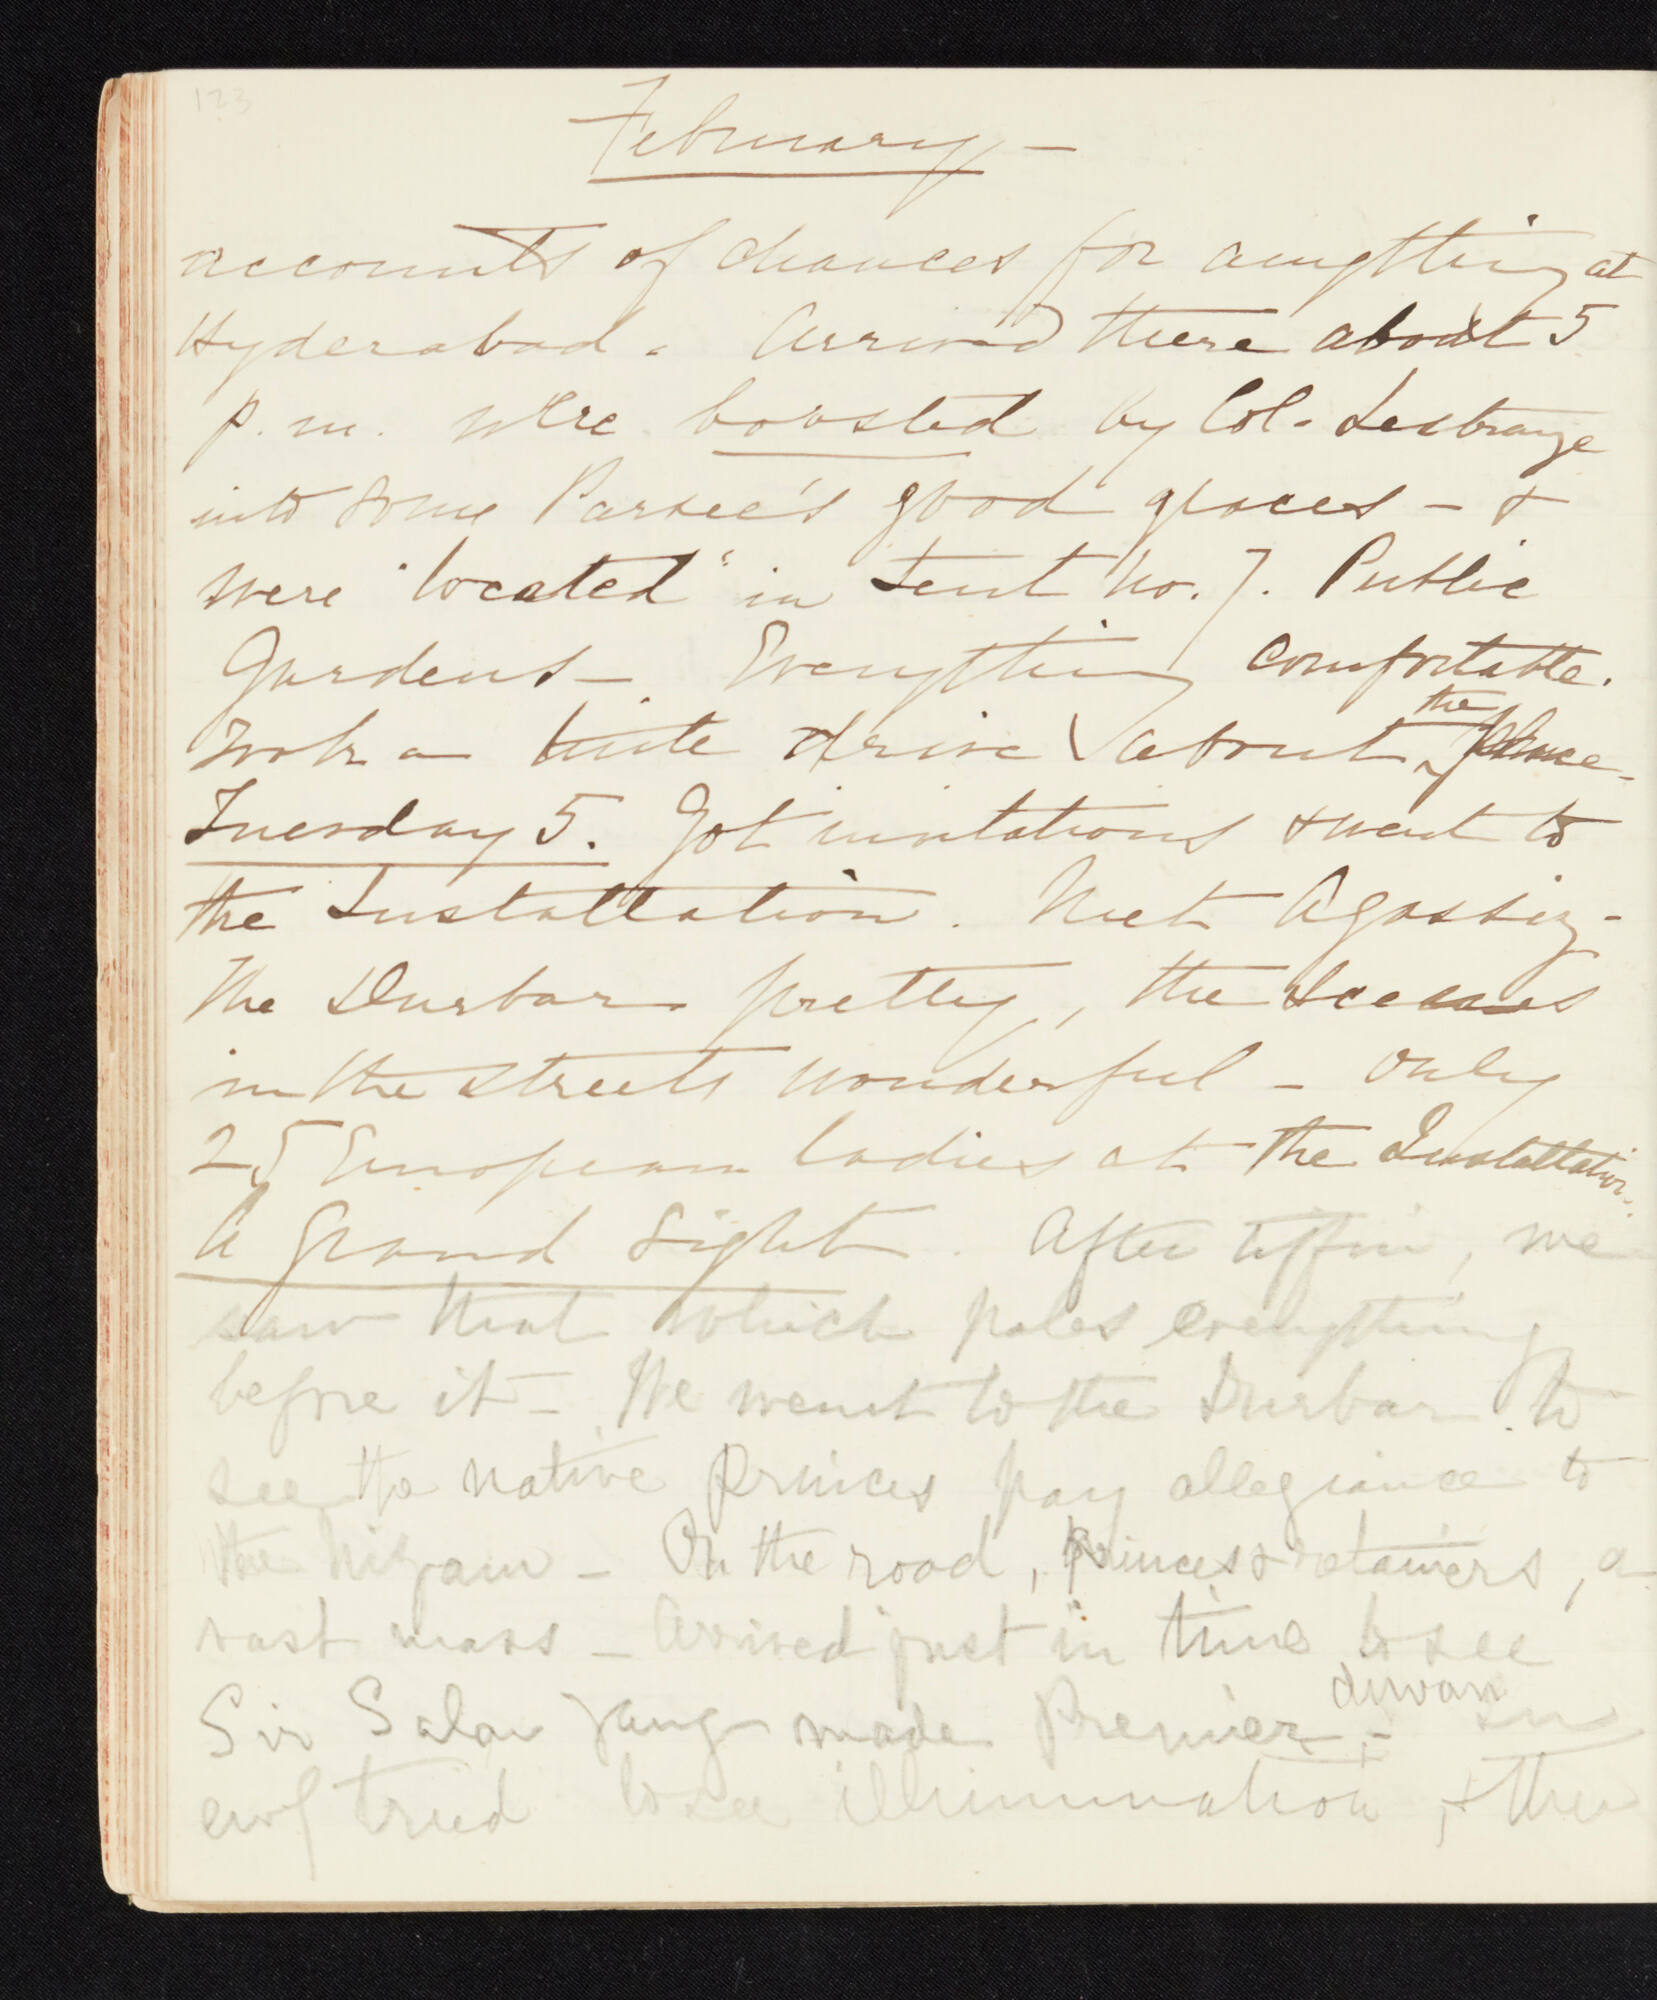 123
February -
accounts of chances for anything at
Hyderabad. Arrived there about 5
p.m. were boosted by Col. Lestrange
into some Parsee's good graces - &
were "located" in Tent No. 7. Public
Gardens - Everything comfortable.
Took a little drive about the place -
Tuesday 5. Got invitations & went to
the Installation. Met Agassiz -
The Durbar pretty, the scenes
in the streets wonderful - only
25 European ladies at the Installation.
A Grand Sight. After tiffin, we
saw that which pales everything
before it - We went to the Durbar to
see the native Princes pay allegiance to
the Nizam - On the road, princes & retainers, a
vast mass - Arrived just in time to see
Sir Salar Jang made Premier - diwan In
evg tried to see illumination, & the